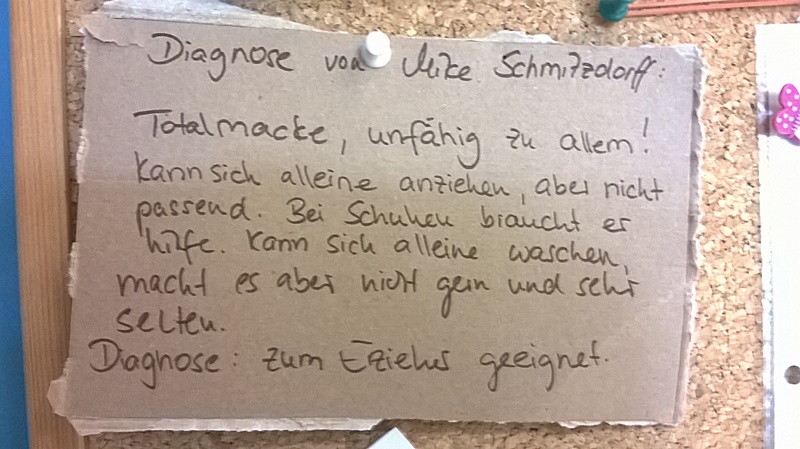 Diagnose von Mike Schmitzdorff:
Totalmacke, unfähig zu allem!
Kann sich alleine anziehen, aber nicht
passend. Bei Schuhen braucht er
hilfe. Kann sich alleine waschen,
macht es aber nicht gern und sehr
selten.
Diagnose: zum Erzieher geeignet.